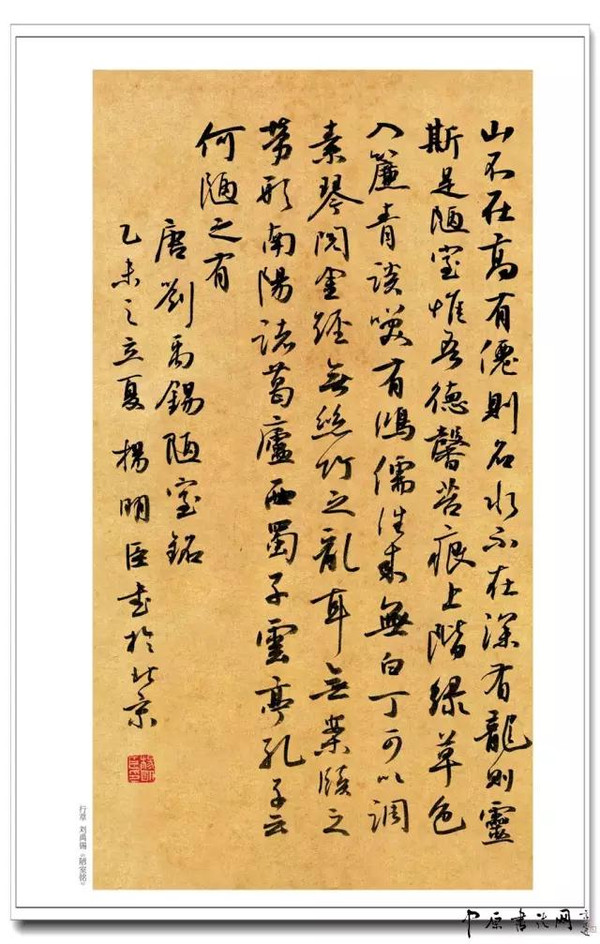 山不在高有僊則名水不在深有龍則靈
斯是陋室惟吾德馨苔痕上階緑草色
入簾青談笑有鴻儒往来無白丁可以調
素琴閱金經無絲竹之亂耳無案牘之
勞形南陽諸葛廬西蜀子雲亭孔子云
何陋之有
唐劉禹錫陋室銘
乙未之立夏楊明臣書於北京
行草 刘禹锡《陋室铭》
中原书法网